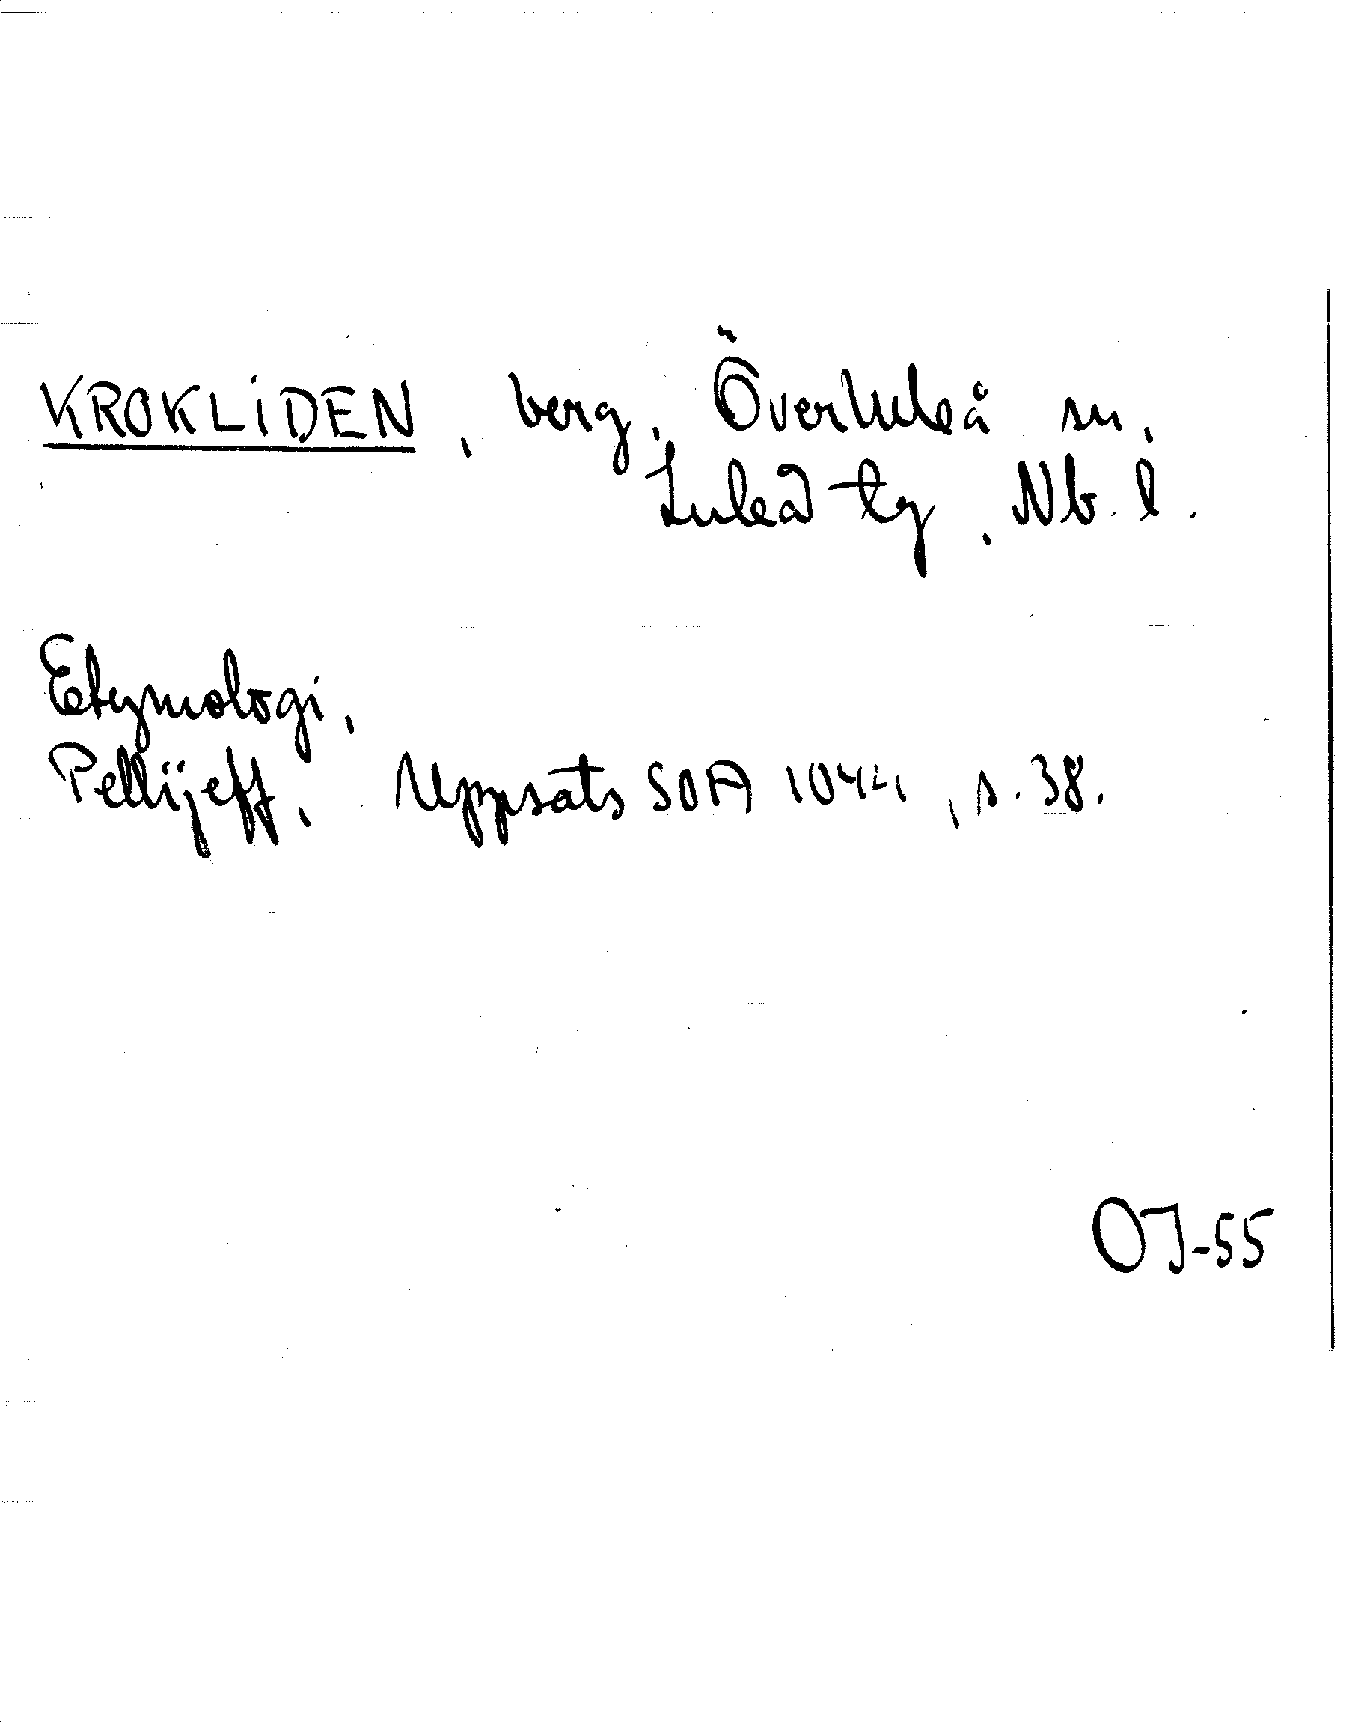 KROKLIDEN, berg, Överluleå sn,
Luleå tg, Nb. l.
Etymologi,
Pellijeff, Uppsats SOA 1044, s. 38.
OJ-55